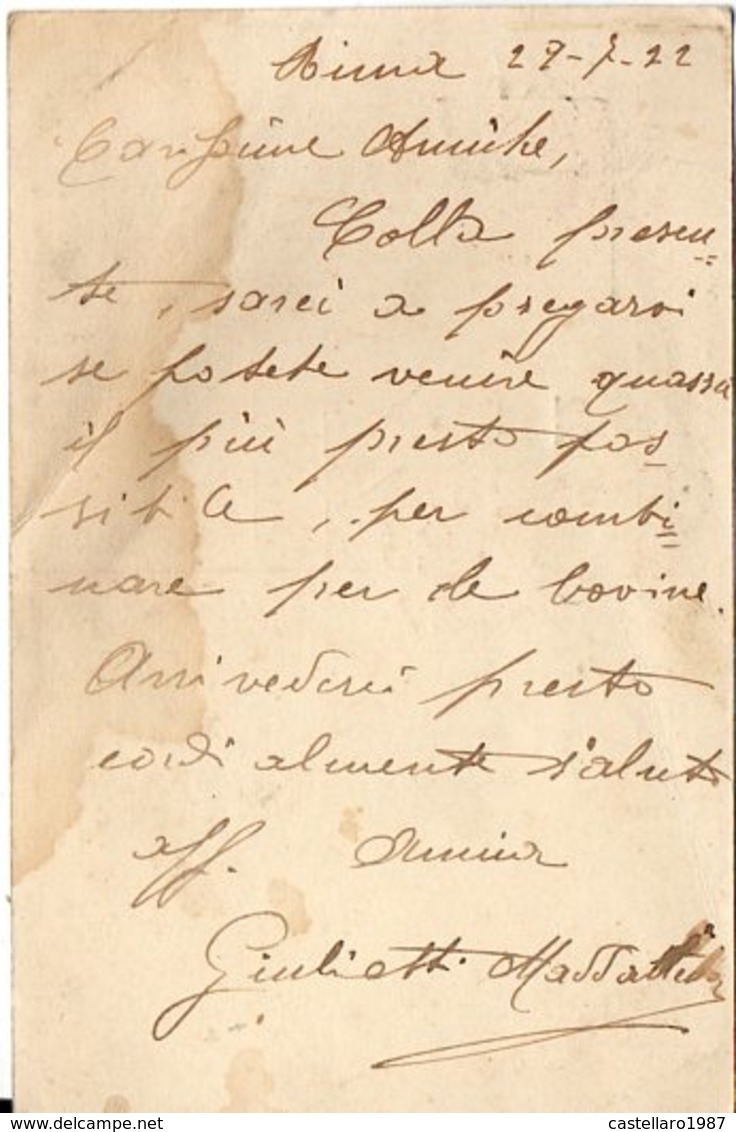 27-7-22
Carissime Amiche,
Colla presen=
te, sarei a pregarvi
se potete venire quassù
il più presto pos-
sibile, per combi=
nare per le bovine.
Arrivederci presto
cordialmente s'aluto
aff. Amica
Giulietti Maddalena
www.delcampe.net
castellaro1987